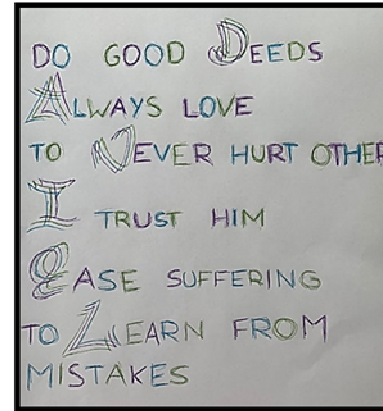 DO GOOD DEEDS
ALWAYS LOVE
TO NEVER HURT OTHER
I TRUST HIM
EASE SUFFERING
TO LEARN FROM
MISTAKES